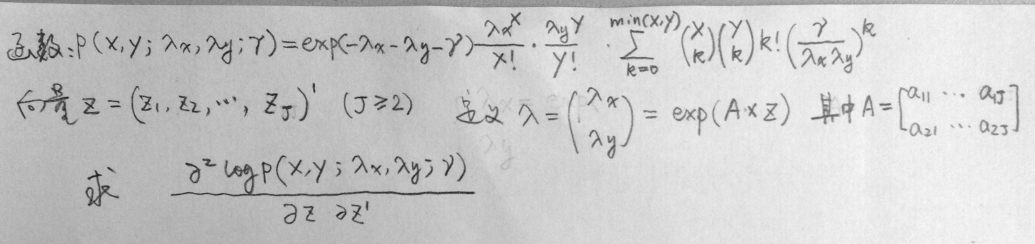 函数: P(X,Y; λx, λy; γ) = exp(-λx-λy-γ) λx^X/X! · λy^Y/Y! · ∑_{k=0}^{min(X,Y)} (X k)(Y k) k! (γ/(λxλy))^k
向量 Z = (Z1, Z2, ..., ZJ)' (J≥2) 定义 λ = (λx λy) = exp(A×Z) 其中 A = [a11 ... a1J a21 ... a2J]
求 ∂² log P(X,Y; λx, λy; γ) / ∂Z ∂Z'